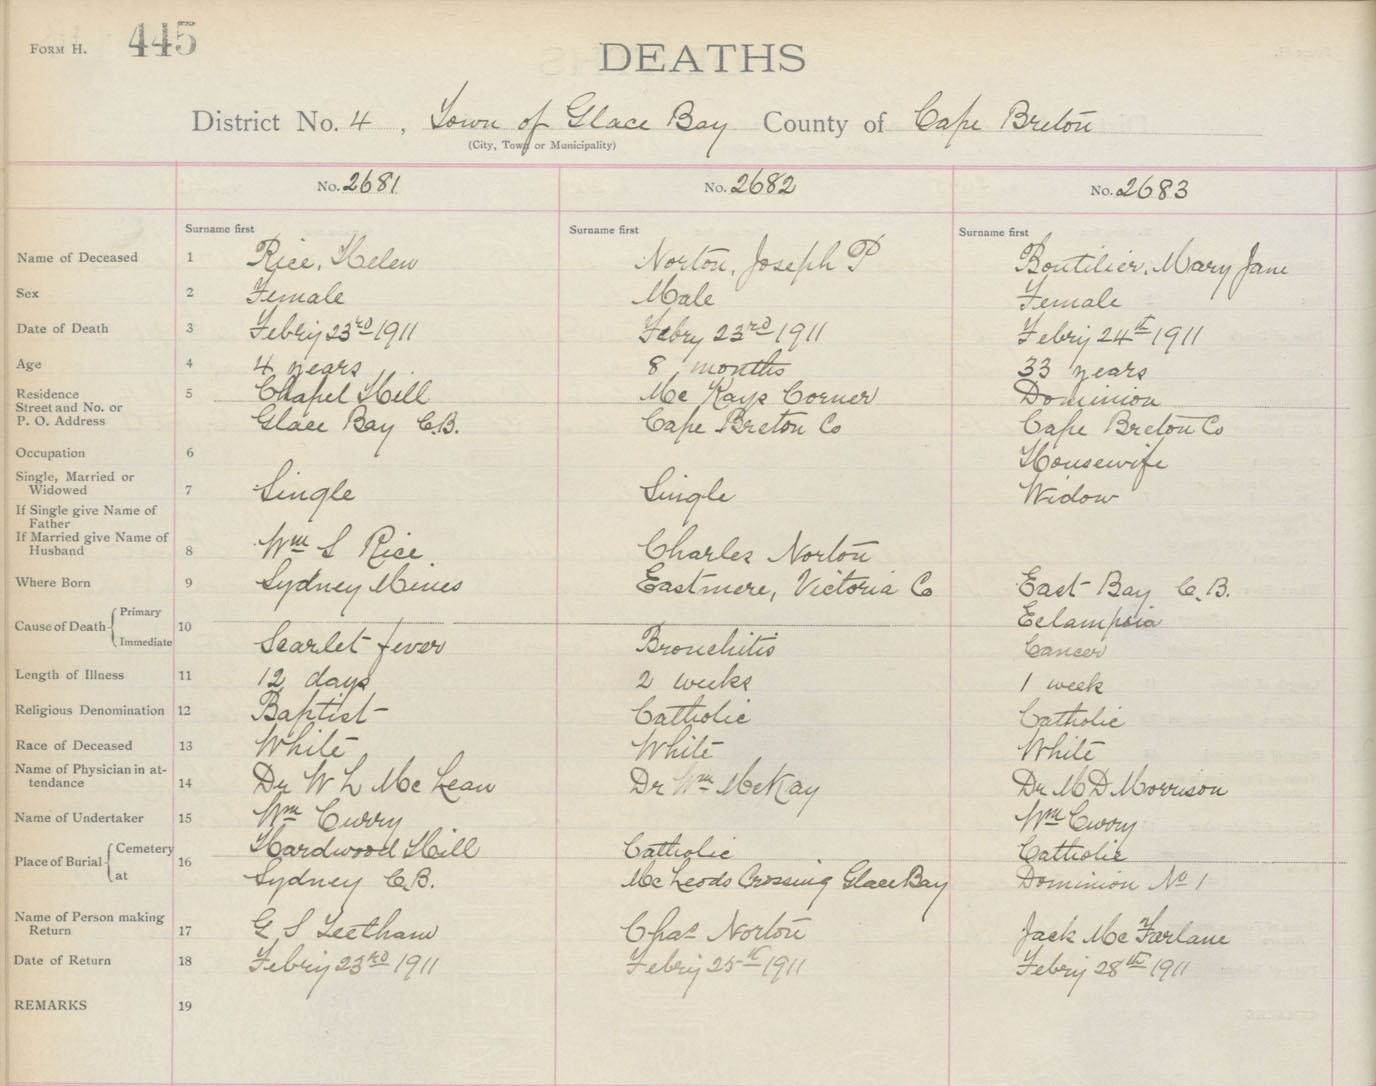 FORM H. 445
DEATHS
District No. 4, Town of Glace Bay County of Cape Breton
(City, Town or Municipality)
No. 2681 No. 2682 No. 2683
Surname first Surname first Surname first
Name of Deceased 1 Rice, Helen Norton, Joseph P Boutilier, Mary Jane
Sex 2 Female Male Female
Date of Death 3 Febriy 23rd 1911 Febry 23rd 1911 Febriy 24th 1911
Age 4 4 years 8 months 33 years
Residence 5 Chapel Hill Mc Kays Corner Dominion
Street and No. or
P. O. Address Glace Bay C.B. Cape Breton Co Cape Breton Co
Occupation 6 Housewife
Single, Married or
Widowed 7 Single Single Widow
If Single give Name of
Father
If Married give Name of
Husband 8 Wm S Rice Charles Norton
Where Born 9 Sydney Mines Eastmere, Victoria Co East Bay C.B.
Cause of Death Primary 10 Eclampsia
Immediate Scarlet fever Bronchitis Cancer
Length of Illness 11 12 days 2 weeks 1 week
Religious Denomination 12 Baptist Catholic Catholic
Race of Deceased 13 White White White
Name of Physician in at-
tendance 14 Dr W L Mc Lean Dr Wm McKay Dr M D Morrison
Name of Undertaker 15 Wm Curry Wm Curry
Place of Burial Cemetery 16 Hardwood Hill Catholic Catholic
at Sydney C.B. Mc Leods Crossing Glace Bay Dominion No 1
Name of Person making
Return 17 G S Leetham Chas Norton Jack Mc Farlane
Date of Return 18 Febriy 23rd 1911 Febriy 25th 1911 Febriy 28th 1911
REMARKS 19